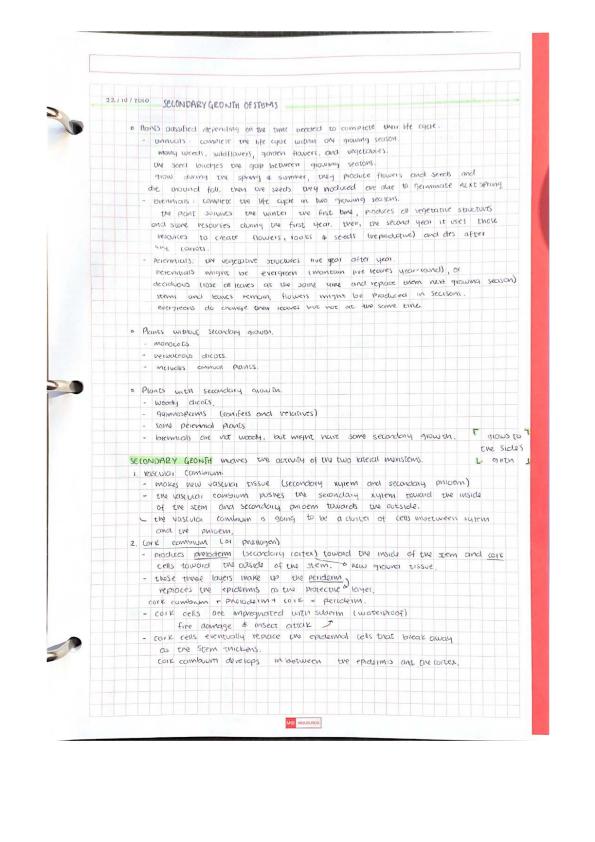 22/10/2020 SECONDARY GROWTH OF STEMS
Plants classified depending on the time needed to complete their life cycle.
- annuals: complete the life cycle within one growing season.
many weeds, wildflowers, garden flowers, and vegetables.
the seed bridges the gap between growing seasons.
grow during the spring & summer, they produce flowers and seeds and
die around fall. then the seeds they produced are due to germinate next spring
- biennials: complete the life cycle in two growing seasons.
the plant survives the winter the first time, produces all vegetative structures
and store resources during the first year. then, the second year it uses those
resources to create flowers, fruits & seeds (reproductive) and dies after
like carrots.
- Perennials: vegetative structures live year after year.
Perennials might be evergreen (maintain live leaves year-round), or
deciduous (lose all leaves at the same time and replace them next growing season)
stems and leaves remain, flowers might be produced in season.
evergreens do change their leaves but not at the same time.
Plants without secondary growth.
- monocots.
- herbaceous dicots.
- includes annual plants.
Plants with secondary growth.
- woody dicots,
- gymnosperms (conifers and relatives)
- some perennial plants
- biennials are not woody, but might have some secondary growth.
grows to
the sides
girth
SECONDARY GROWTH involves the activity of the two lateral meristems.
1. vascular cambium:
- makes new vascular tissue (secondary xylem and secondary phloem)
- the vascular cambium pushes the secondary xylem toward the inside
of the stem and secondary phloem towards the outside.
the vascular cambium is going to be a cluster of cells inbetween xylem
and the phloem.
2. Cork cambium (or phellogen)
- produces phelloderm (secondary cortex) toward the inside of the stem and cork
cells toward the outside of the stem. new ground tissue.
- these three layers make up the periderm
replaces the epidermis as the protective layer.
cork cambium + phelloderm + cork = periderm.
- cork cells are impregnated with suberin (waterproof)
fire damage & insect attack
- cork cells eventually replace the epidermal cells that break away
as the stem thickens.
cork cambium develops in between the epidermis and the cortex.
MIQUELRIUS